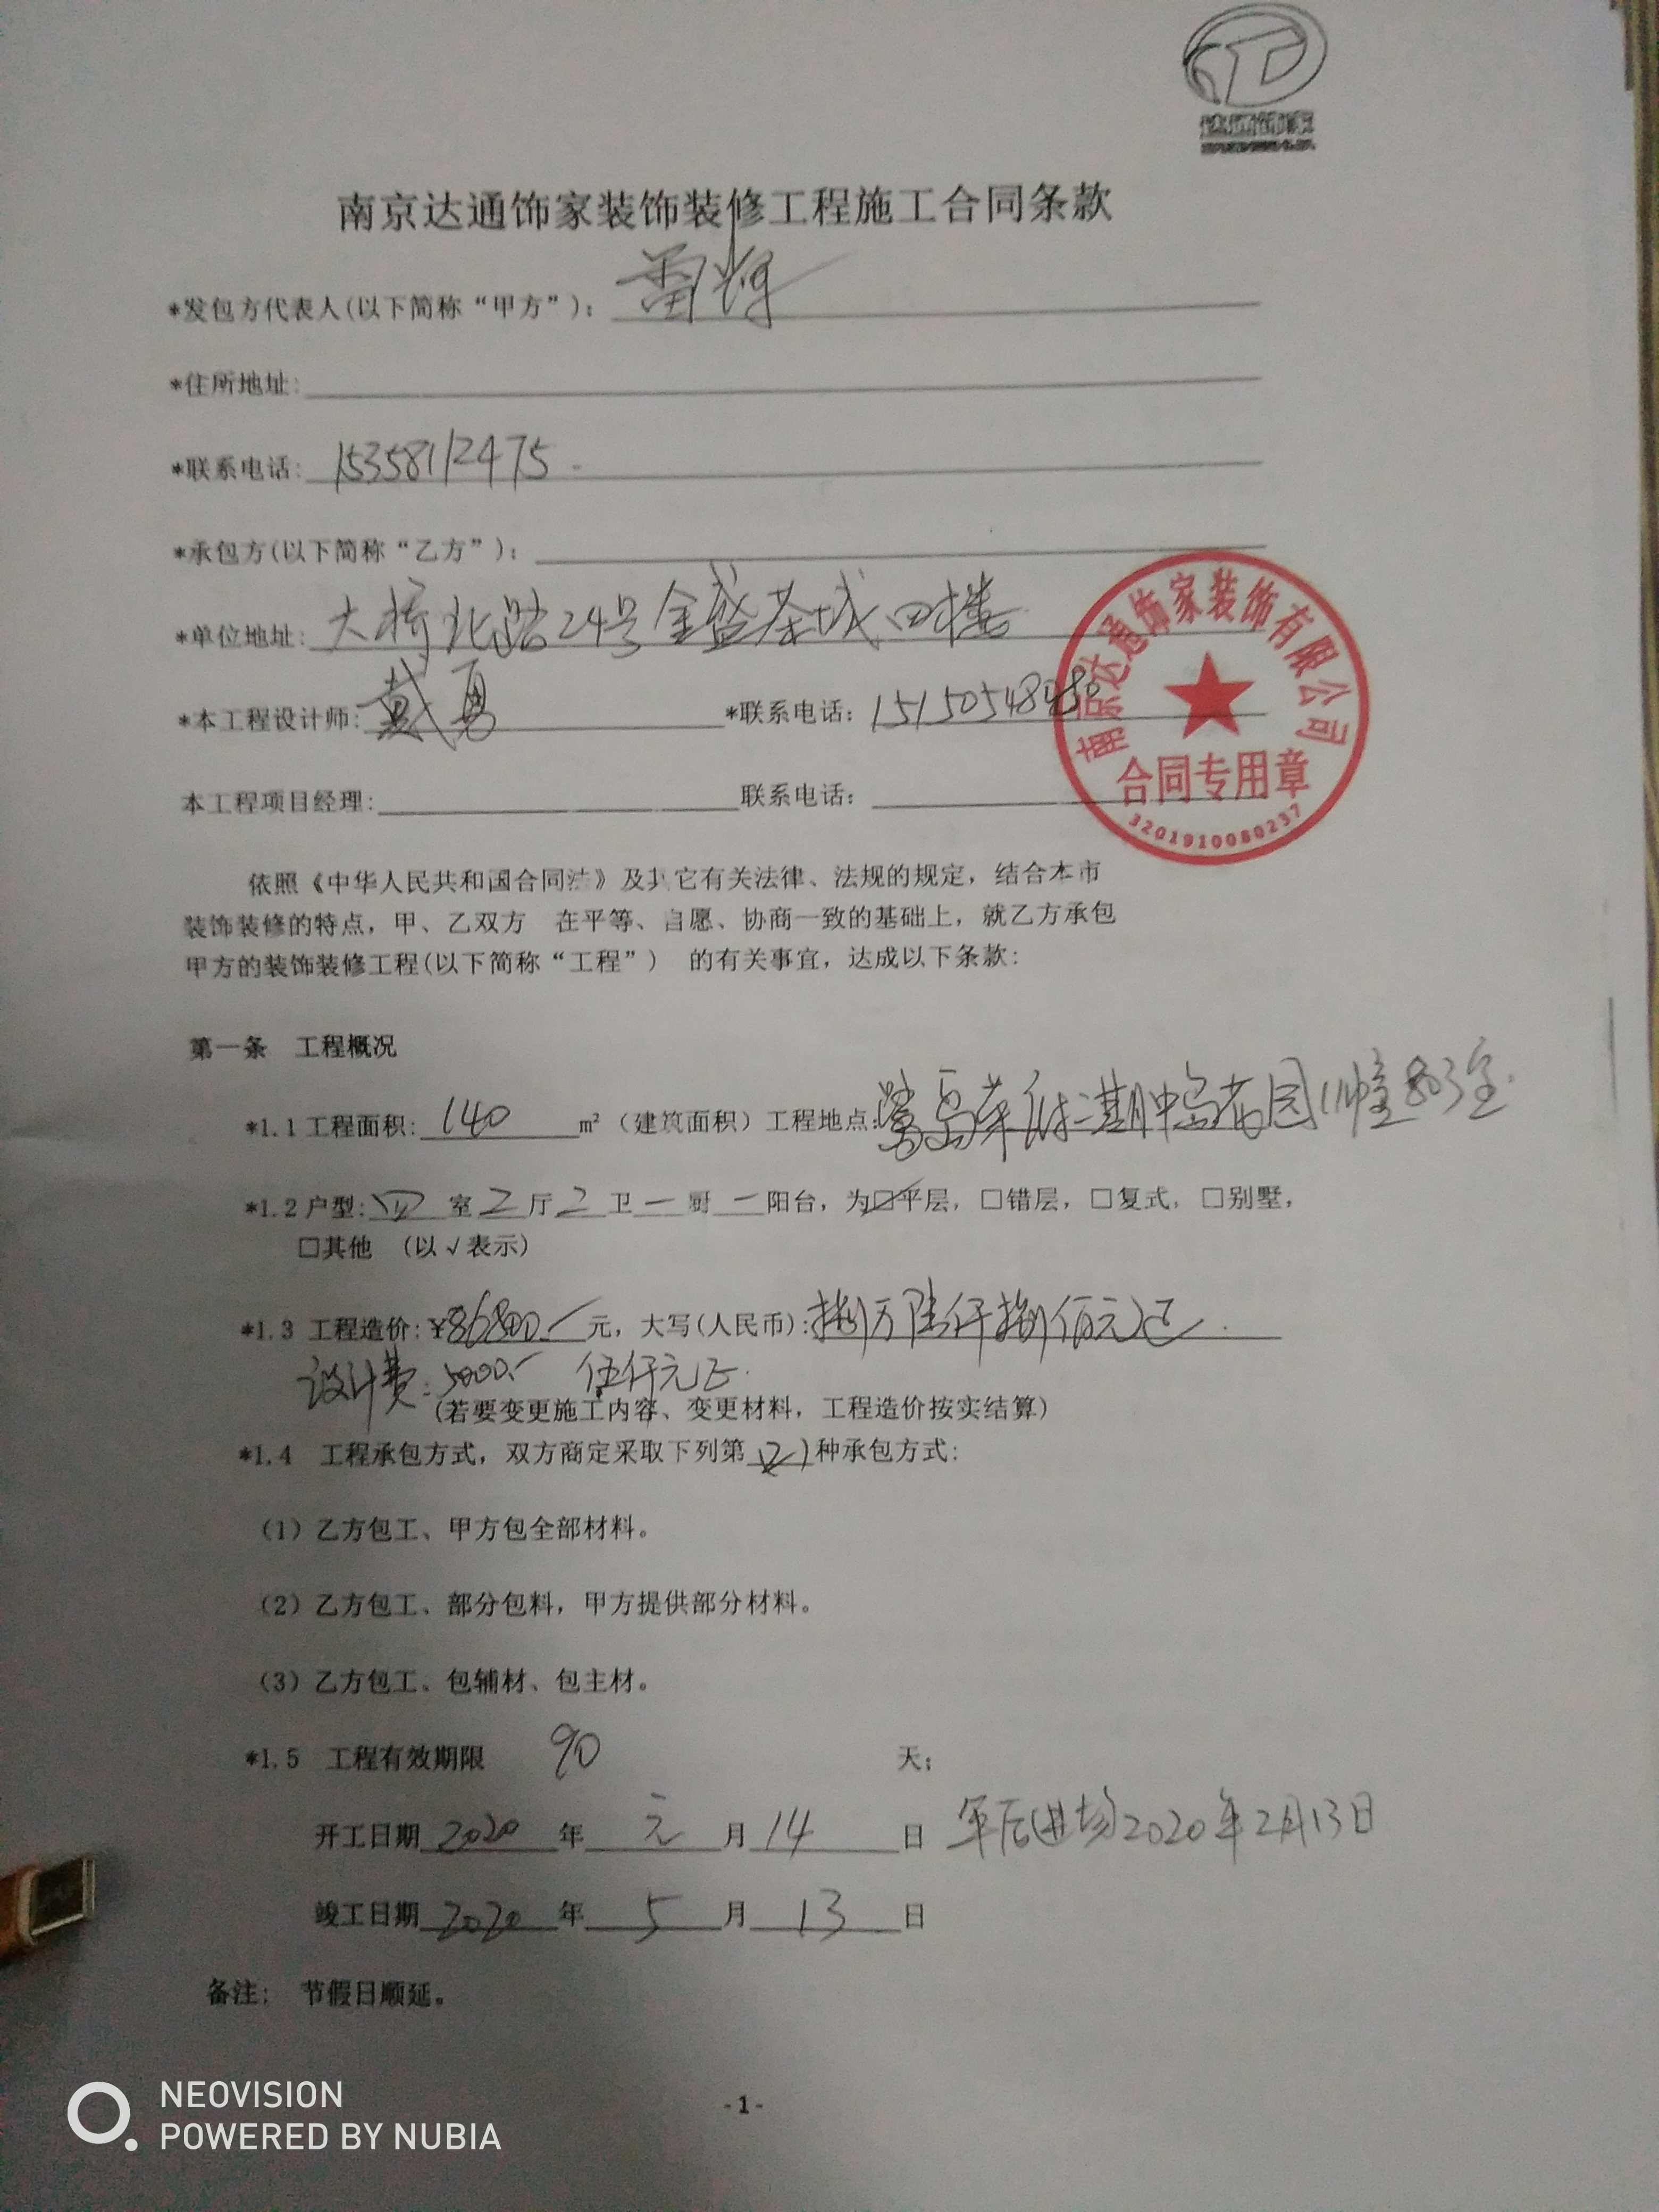 南京达通饰家装饰装修工程施工合同条款
*发包方代表人(以下简称“甲方”): 雷辉
*住所地址:
*联系电话: 15358112475
*承包方(以下简称“乙方”):
*单位地址: 大桥北路24号金盛茶城四楼
*本工程设计师: 戴勇 *联系电话: 15150548480
本工程项目经理: 联系电话:
南京达通饰家装饰有限公司
合同专用章
3201910080237
依照《中华人民共和国合同法》及其它有关法律、法规的规定，结合本市
装饰装修的特点，甲、乙双方 在平等、自愿、协商一致的基础上，就乙方承包
甲方的装饰装修工程(以下简称“工程”) 的有关事宜，达成以下条款:
第一条 工程概况
*1.1工程面积: 140 m²（建筑面积）工程地点: 花园 803室
*1.2户型: 四 室 2 厅 2 卫 一 厨 一 阳台，为☑平层，□错层，□复式，□别墅，
□其他 (以√表示)
*1.3 工程造价:¥86800.- 元，大写(人民币): 捌万陆仟捌佰元正.
设计费: 5000.- 伍仟元正.
(若要变更施工内容、变更材料，工程造价按实结算)
*1.4 工程承包方式，双方商定采取下列第 (2) 种承包方式:
(1)乙方包工、甲方包全部材料。
(2)乙方包工、部分包料，甲方提供部分材料。
(3)乙方包工、包辅材、包主材。
*1.5 工程有效期限 90 天;
开工日期 2020 年 元 月 14 日 年后(进场)2020年2月13日
竣工日期 2020 年 5 月 13 日
备注: 节假日顺延。
-1-
NEOVISION
POWERED BY NUBIA